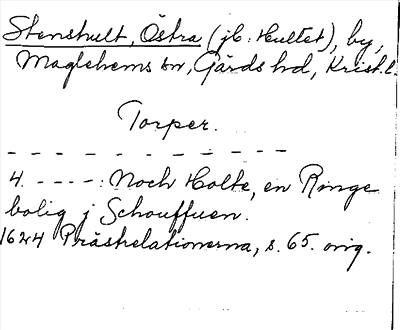 Stenshult, Östra (jb: Hultet), by,
Maglehems sn, Gärds hd, Krist. l.
Torper.
— — — — — — — — — — —
4. - - - - : Noch Holte, en Ringe
bolig j Schouffuen.
1624 Prästrelationerna, s. 65. orig.